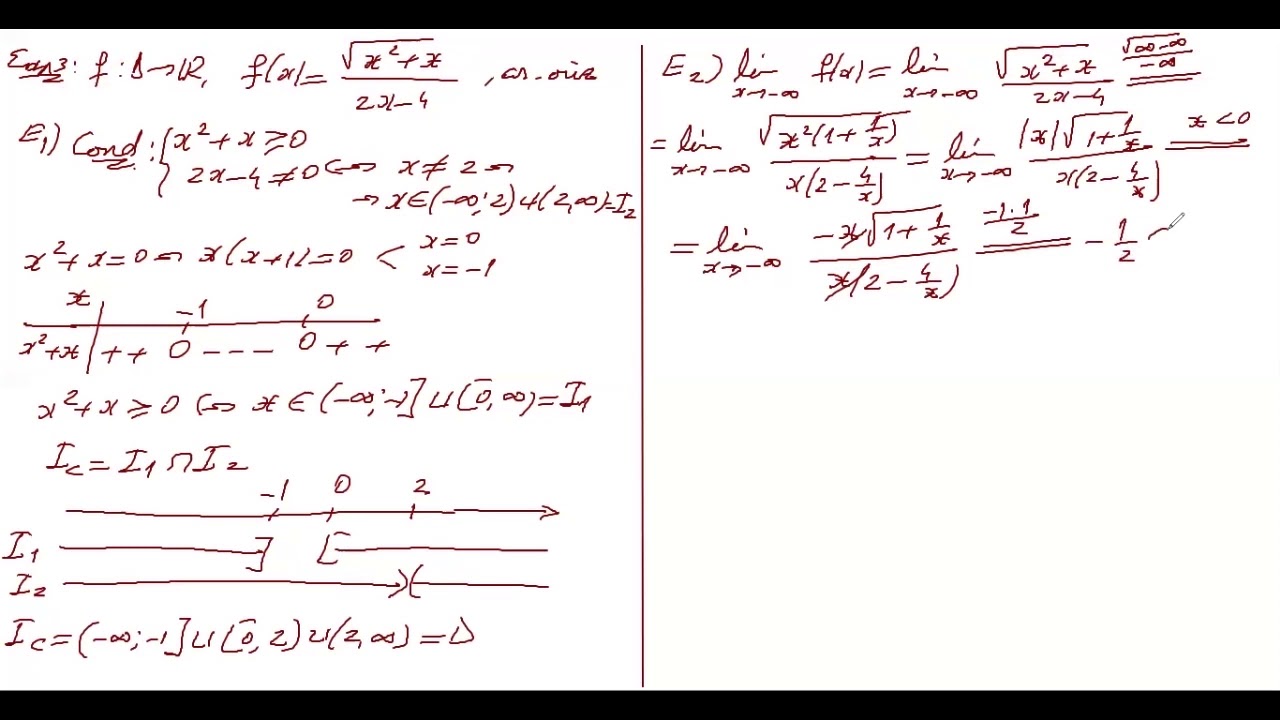 Exp3: f: D→ℝ, f(x)= √(x²+x) / (2x-4), as. oriz
E₁) Cond: { x²+x ≥ 0
2x-4 ≠ 0 ⇔ x ≠ 2 ⇔
→ x∈(-∞; 2) ∪ (2, ∞) = I₂
x²+x=0 ⇔ x(x+1)=0 < x=0
x=-1
x -1 0
x²+x | + + 0 - - - 0 + +
x²+x ≥ 0 ⇔ x ∈ (-∞; -1] ∪ [0, ∞) = I₁
I_c = I₁ ∩ I₂
-1 0 2
I₁ ] [
I₂ )(
I_c = (-∞; -1] ∪ [0, 2) ∪ (2, ∞) = D
E₂) lim x→-∞ f(x) = lim x→-∞ √(x²+x) / (2x-4) = √(∞-∞) / -∞
= lim x→-∞ √(x²(1+1/x)) / x(2-4/x) = lim x→-∞ |x|√(1+1/x) / x(2-4/x) = x<0
= lim x→-∞ -x√(1+1/x) / x(2-4/x) = -1·1 / 2 = -1/2